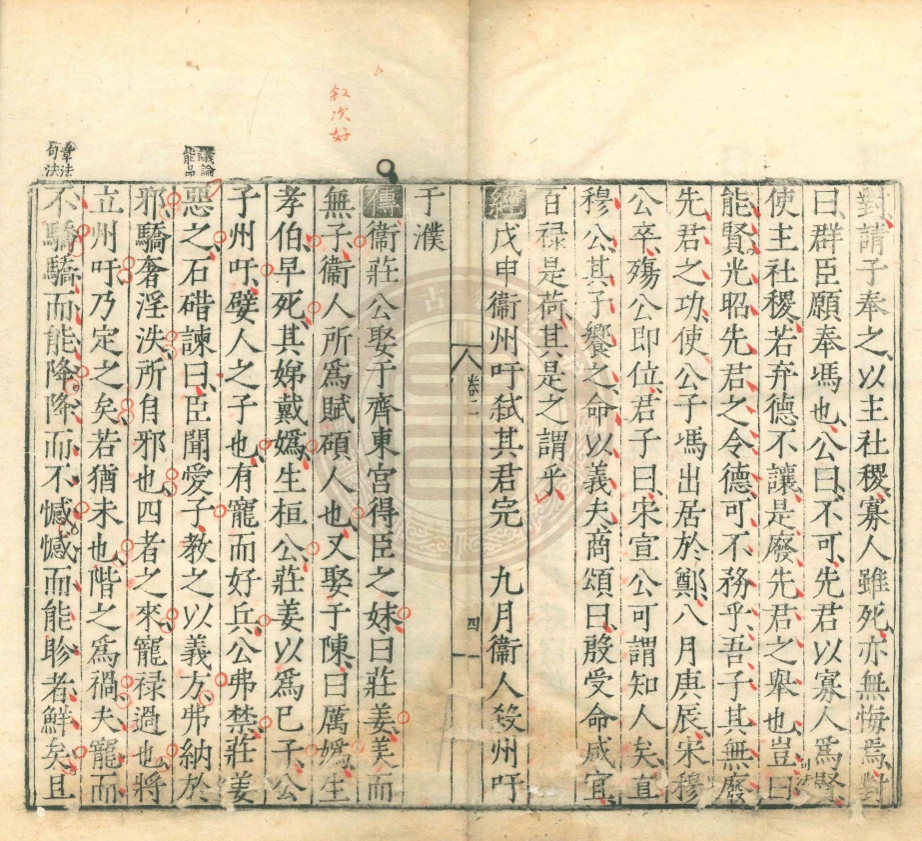 對請子奉之以主社稷寡人雖死亦無悔焉對
曰群臣願奉馮也公曰不可先君以寡人爲賢
使主社稷若弃德不讓是廢先君之舉也豈曰
能賢光昭先君之令德可不務乎吾子其無廢
先君之功使公子馮出居於鄭八月庚辰宋穆
公卒殤公即位君子曰宋宣公可謂知人矣直
穆公其子饗之命以義夫商頌曰殷受命咸宜
百禄是荷其是之謂乎
經戊申衛州吁弑其君完　九月衛人殺州吁
于濮
卷二
四
傳衛莊公娶于齊東宮得臣之妹曰莊姜美而
敘次好
無子衛人所爲賦碩人也又娶于陳曰厲嬀生
孝伯早死其娣戴嬀生桓公莊姜以爲已子公
子州吁嬖人之子也有寵而好兵公弗禁莊姜
議論
能品
惡之石碏諫曰臣聞愛子教之以義方弗納於
邪驕奢淫泆所自邪也四者之來寵禄過也將
立州吁乃定之矣若猶未也階之爲禍夫寵而
章法
句法
不驕驕而能降降而不憾憾而能眕者鮮矣且